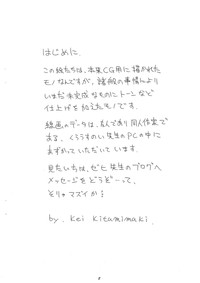 はじめに.
この絵たちは、本来CG用に描かれた
モノなんですが、諸般の事情により
いまだ未完成なものにトーンなど
仕上げを加えたモノです。
線画のデータは、なんであり同人作家で
ある、くろうすのい先生のPCの中に
あずかっていただいています。
見たい方は、ゼヒ先生のブログへ
メッセージをどうぞーって、
そりゃマズイか!
by. Kei Kitamimaki.